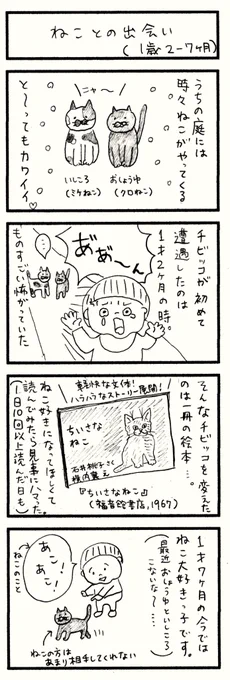 ねことの出会い
(1歳2-7ヶ月)
うちの庭には
時々ねこがやってくる
と〜ってもカワイイ♡
ニャ〜
おしょうゆ
(クロねこ)
いしころ
(ミケねこ)
チビッコが初めて
遭遇したのは
1才2ヶ月の時。
ものすごい怖がっていた
あ゛あ゛〜ん
…
そんなチビッコを変えた
のは一冊の絵本…。
軽快な文体!
ハラハラなストーリー展開!
ちいさな
ねこ
石井桃子さく
横内襄え
『ちいさなねこ』
(福音館書店,1967)
ねこ好きになってほしくて
読んでみたら見事にハマった。
(1日10回以上読んだ日も)
1才7ヶ月の今では
ねこ大好きっ子です。
(最近おしょうゆといしころ
こないな〜……)
あこ!
あこ!
ねこのこと
ねこの方は
あまり相手してくれない